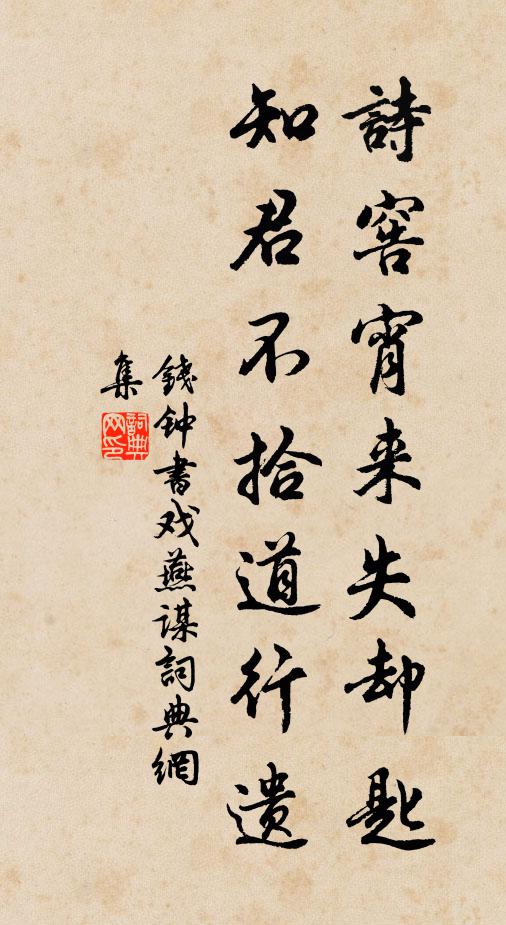 詩窖宵来失却匙
知君不拾道行遗
錢钟書戏燕谋詞典網
集
詞典网印